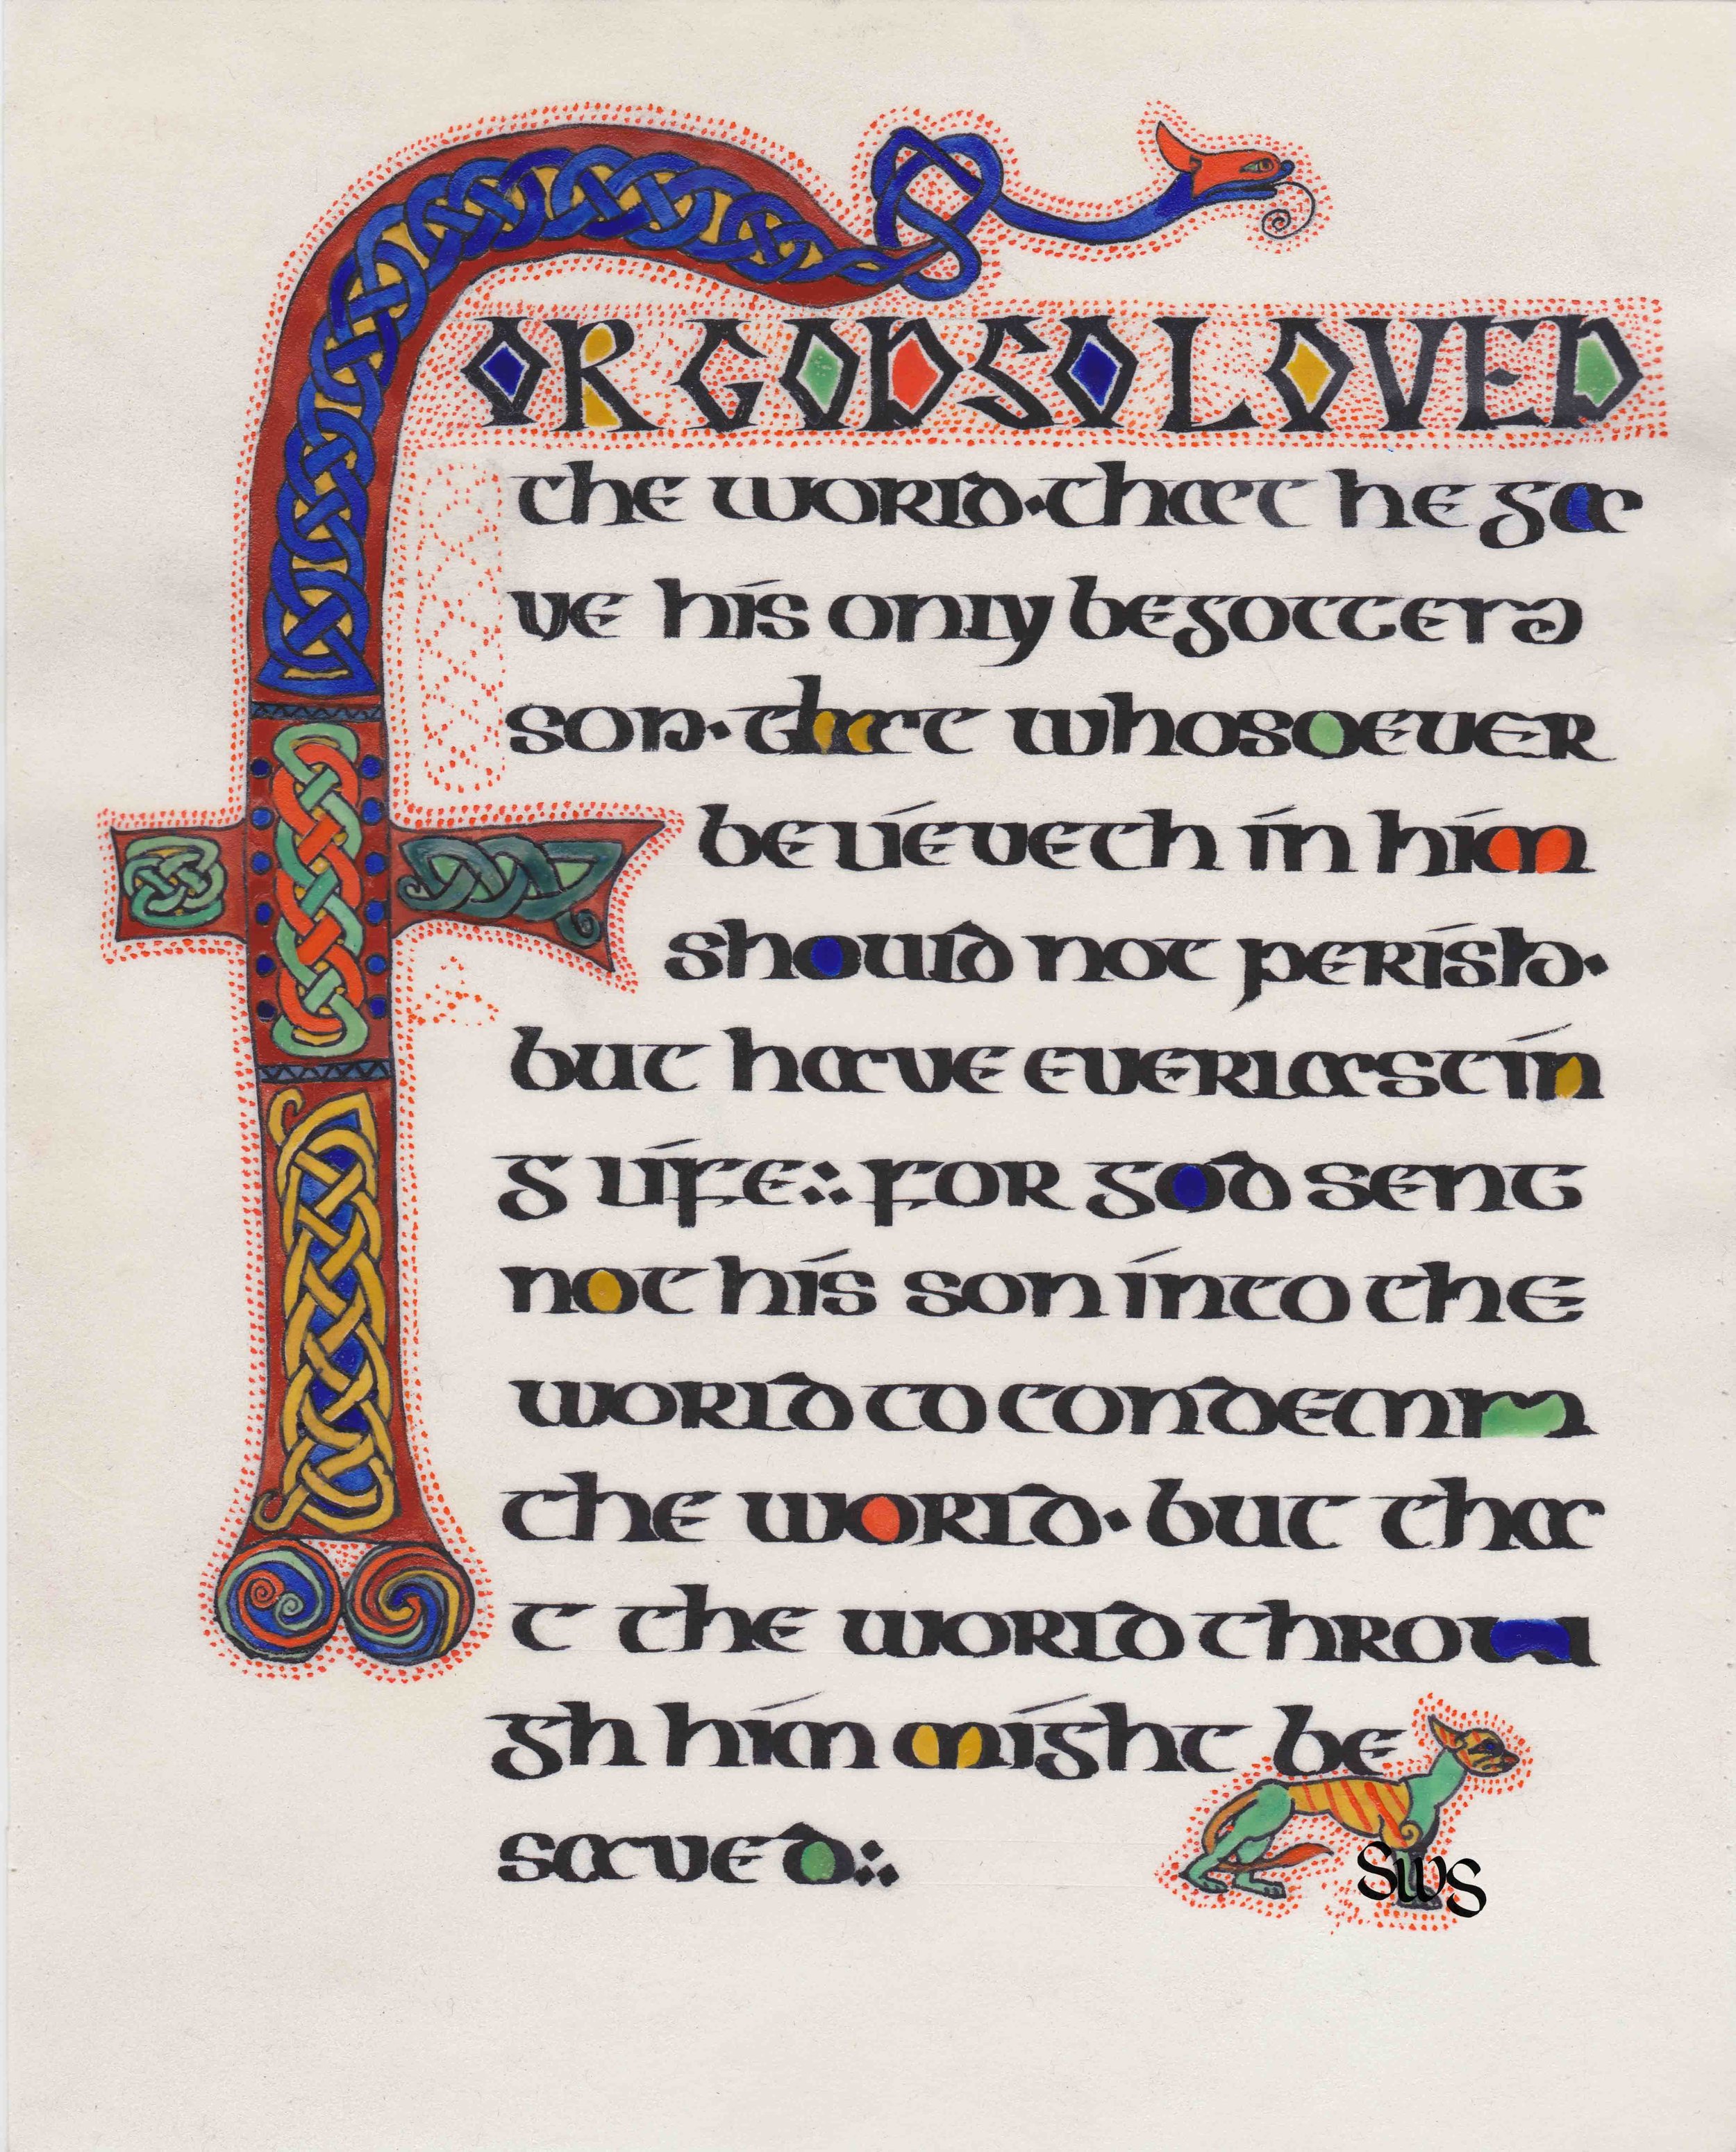 FOR GOD SO LOVED
the world·that he ga
ve his only begotten
son·that whosoever
believeth in him
should not perish·
but have everlastin
g life:·for god sent
not his son into the
world to condemn
the world·but tha
t the world throu
gh him might be
saved:·
SWS